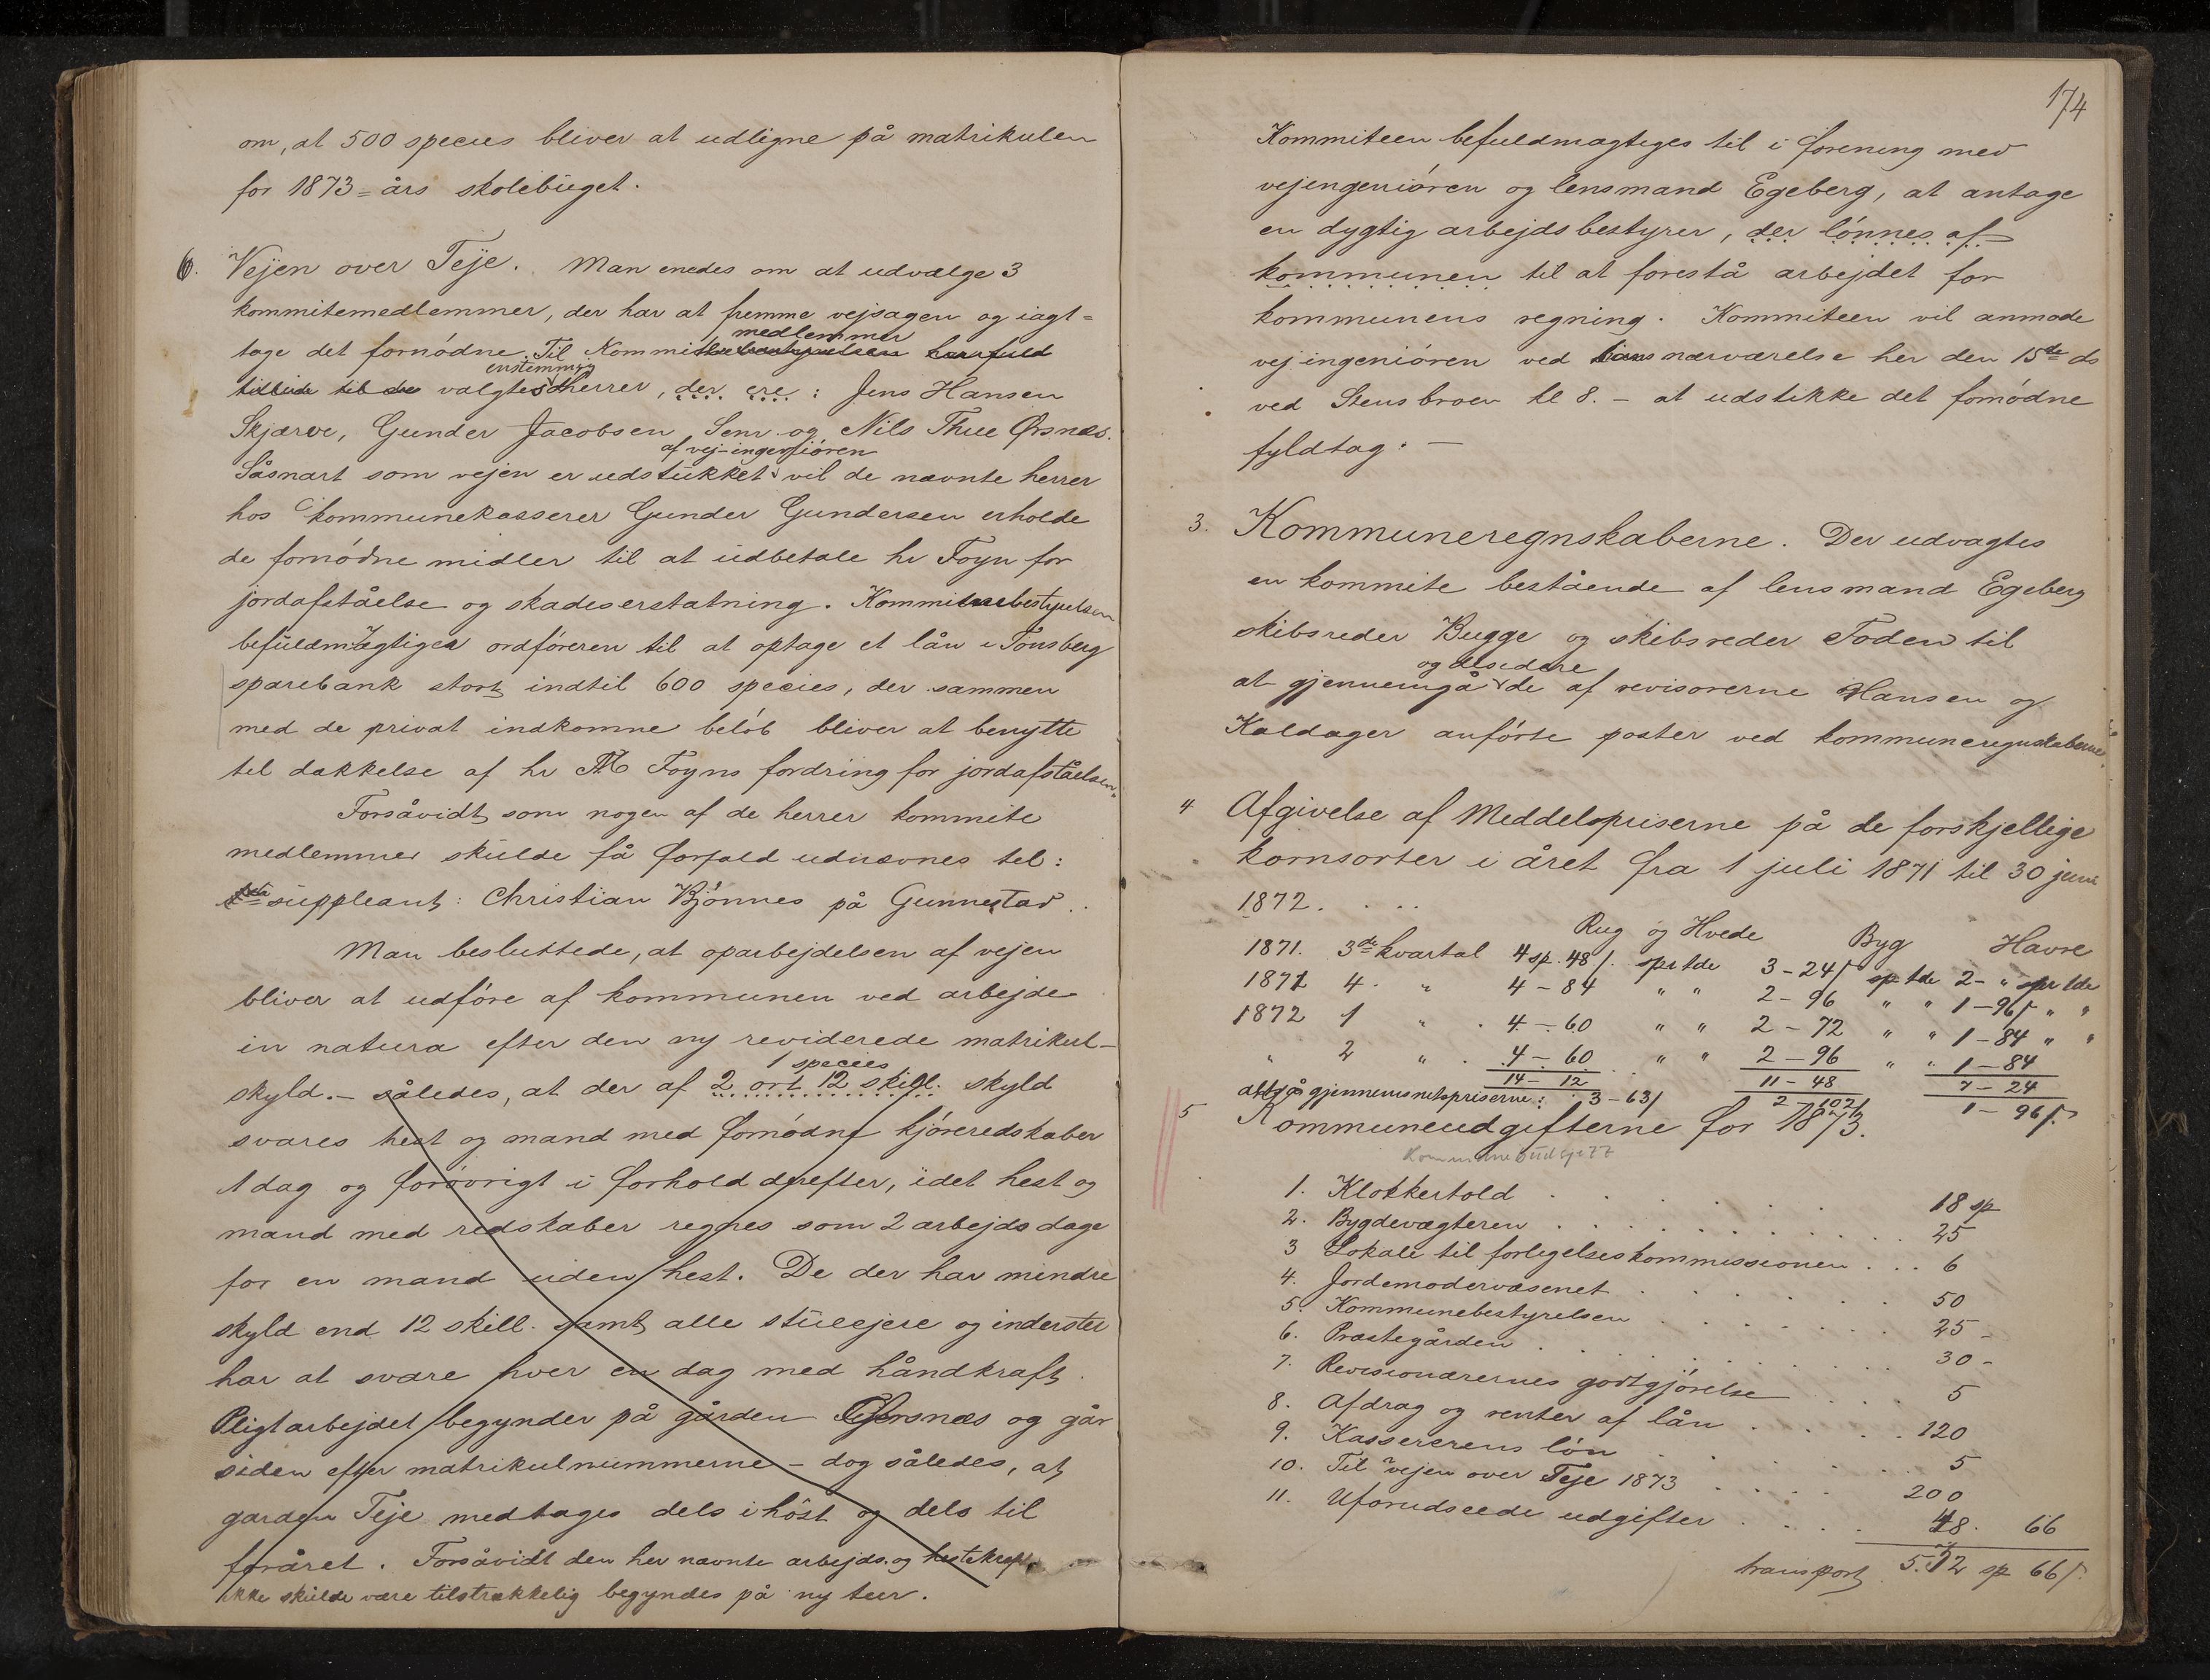 om, at 500 species bliver at udligne på matrikulen
for 1873-års skolebüget.
6. Vejen over Teje. Man enedes om at udvælge 3
kommitemedlemmer, der har at fremme vejsagen og iagt=
medlemmer
tage det fornødne. Til Kommite har fuld
enstemmig
tillid til de valgtes herrer, der ere: Jens Hansen
Skjærve, Gunder Jacobsen Sem og Nils Thue Ørsnæs.
af vej-ingeniøren
Såsnart som vejen er udstükket vil de nævnte herrer
hos kommunekasserer Gunder Gundersen erholde
de fornødne midler til at üdbetale hr Foyn for
jordafståelse og skadeserstatning. Kommunebestyrelsen
befüldmægtiger ordføreren til at optage et lån i Tønsberg
sparebank stort indtil 600 species, der sammen
med de privat indkomne beløb bliver at benytte
til dækkelse af hr Foyns fordring for jordafståelsen.
Forsåvidt som nogen af de herrer kommite
medlemmer skülde få forfald udnævnes til:
süppleant: Christian Bjønnes på Gunnestad.
Man besluttede, at oparbejdelsen af vejen
bliver at udføre af kommunen ved arbejde
in natura efter den ny reviderede matrikul-
1 species
skyld. - således, at der af 2 ort 12 skill. skyld
svares hest og mand med fornødne kjøreredskaber
1 dag og forøvrigt i forhold derefter, idet hest og
mand med redskaber regnes som 2 arbejdsdage
for en mand uden hest. De der har mindre
skyld end 12 skill. samt alle stüeejere og inderster
har at svare hver en dag med håndkraft.
Pligtarbejdet begynder på gården Ørsnæs og går
siden efter matrikulnummerne - dog således, at
garden Teje medtages dels i høst og dels til
foråret. Forsåvidt den her nævnte arbejds- og hestekraft
ikke skülde være tilstrækkelig begyndes på ny tur.
174
Kommiteen befuldmægtiges til i forening med
vejingeniøren og lensmand Egeberg, at antage
en dygtig arbejdsbestyrer, der lønnes af
kommunen til at forestå arbejdet for
kommunens regning. Kommiteen vil anmode
vejingeniøren ved hans nærværelse her den 15de ds
ved Stensbroen kl 8. - at udstikke det fornødne
fyldtag. -
3. Kommuneregnskaberne. Der udvagtes
en kommite bestående af lensmand Egeberg
skibsreder Bugge og skibsreder Foden til
og desidere
at gjennemgå de af revisorerne Hansen og
Kaldager anførte poster ved kommuneregnskaberne.
4 Afgivelse af Meddelspriserne på de forskjellige
kornsorter i året fra 1 juli 1871 til 30 juni
1872.
Rug og Hvede Byg Havre
1871. 3de kvartal 4 sp. 48 /. spr tde 3-24/ sp tde 2- " spr tde
1871 4. " 4-84 " " 2-96 " " 1-96/ " "
1872 1 " 4-60 " " 2-72 " " 1-84 " "
" 2 " 4-60 " " 2-96 " " 1-84
14-12 11-48 7-24
altså gjennemsnetspriserne: 3-63/ 2-102/ 1-96/.
5 Kommuneudgifterne for 1873.
Kommunebüdsjett
1. Klokkertold 18 sp
2. Bygdevægteren 25
3 Lokale til forligelseskommissionen 6
4. Jordemodervæsenet 50
5. Kommunebestyrelsen 25 -
6. Præstegården 30 -
7. Revisionærernes godtgjørelse 5
8. Afdrag og renter af lån 120
9. Kassererens løn 5
10. Til vejen over Teje 1873 200
11. Uforudseede udgifter 48. 66
transport 532 sp 66/.